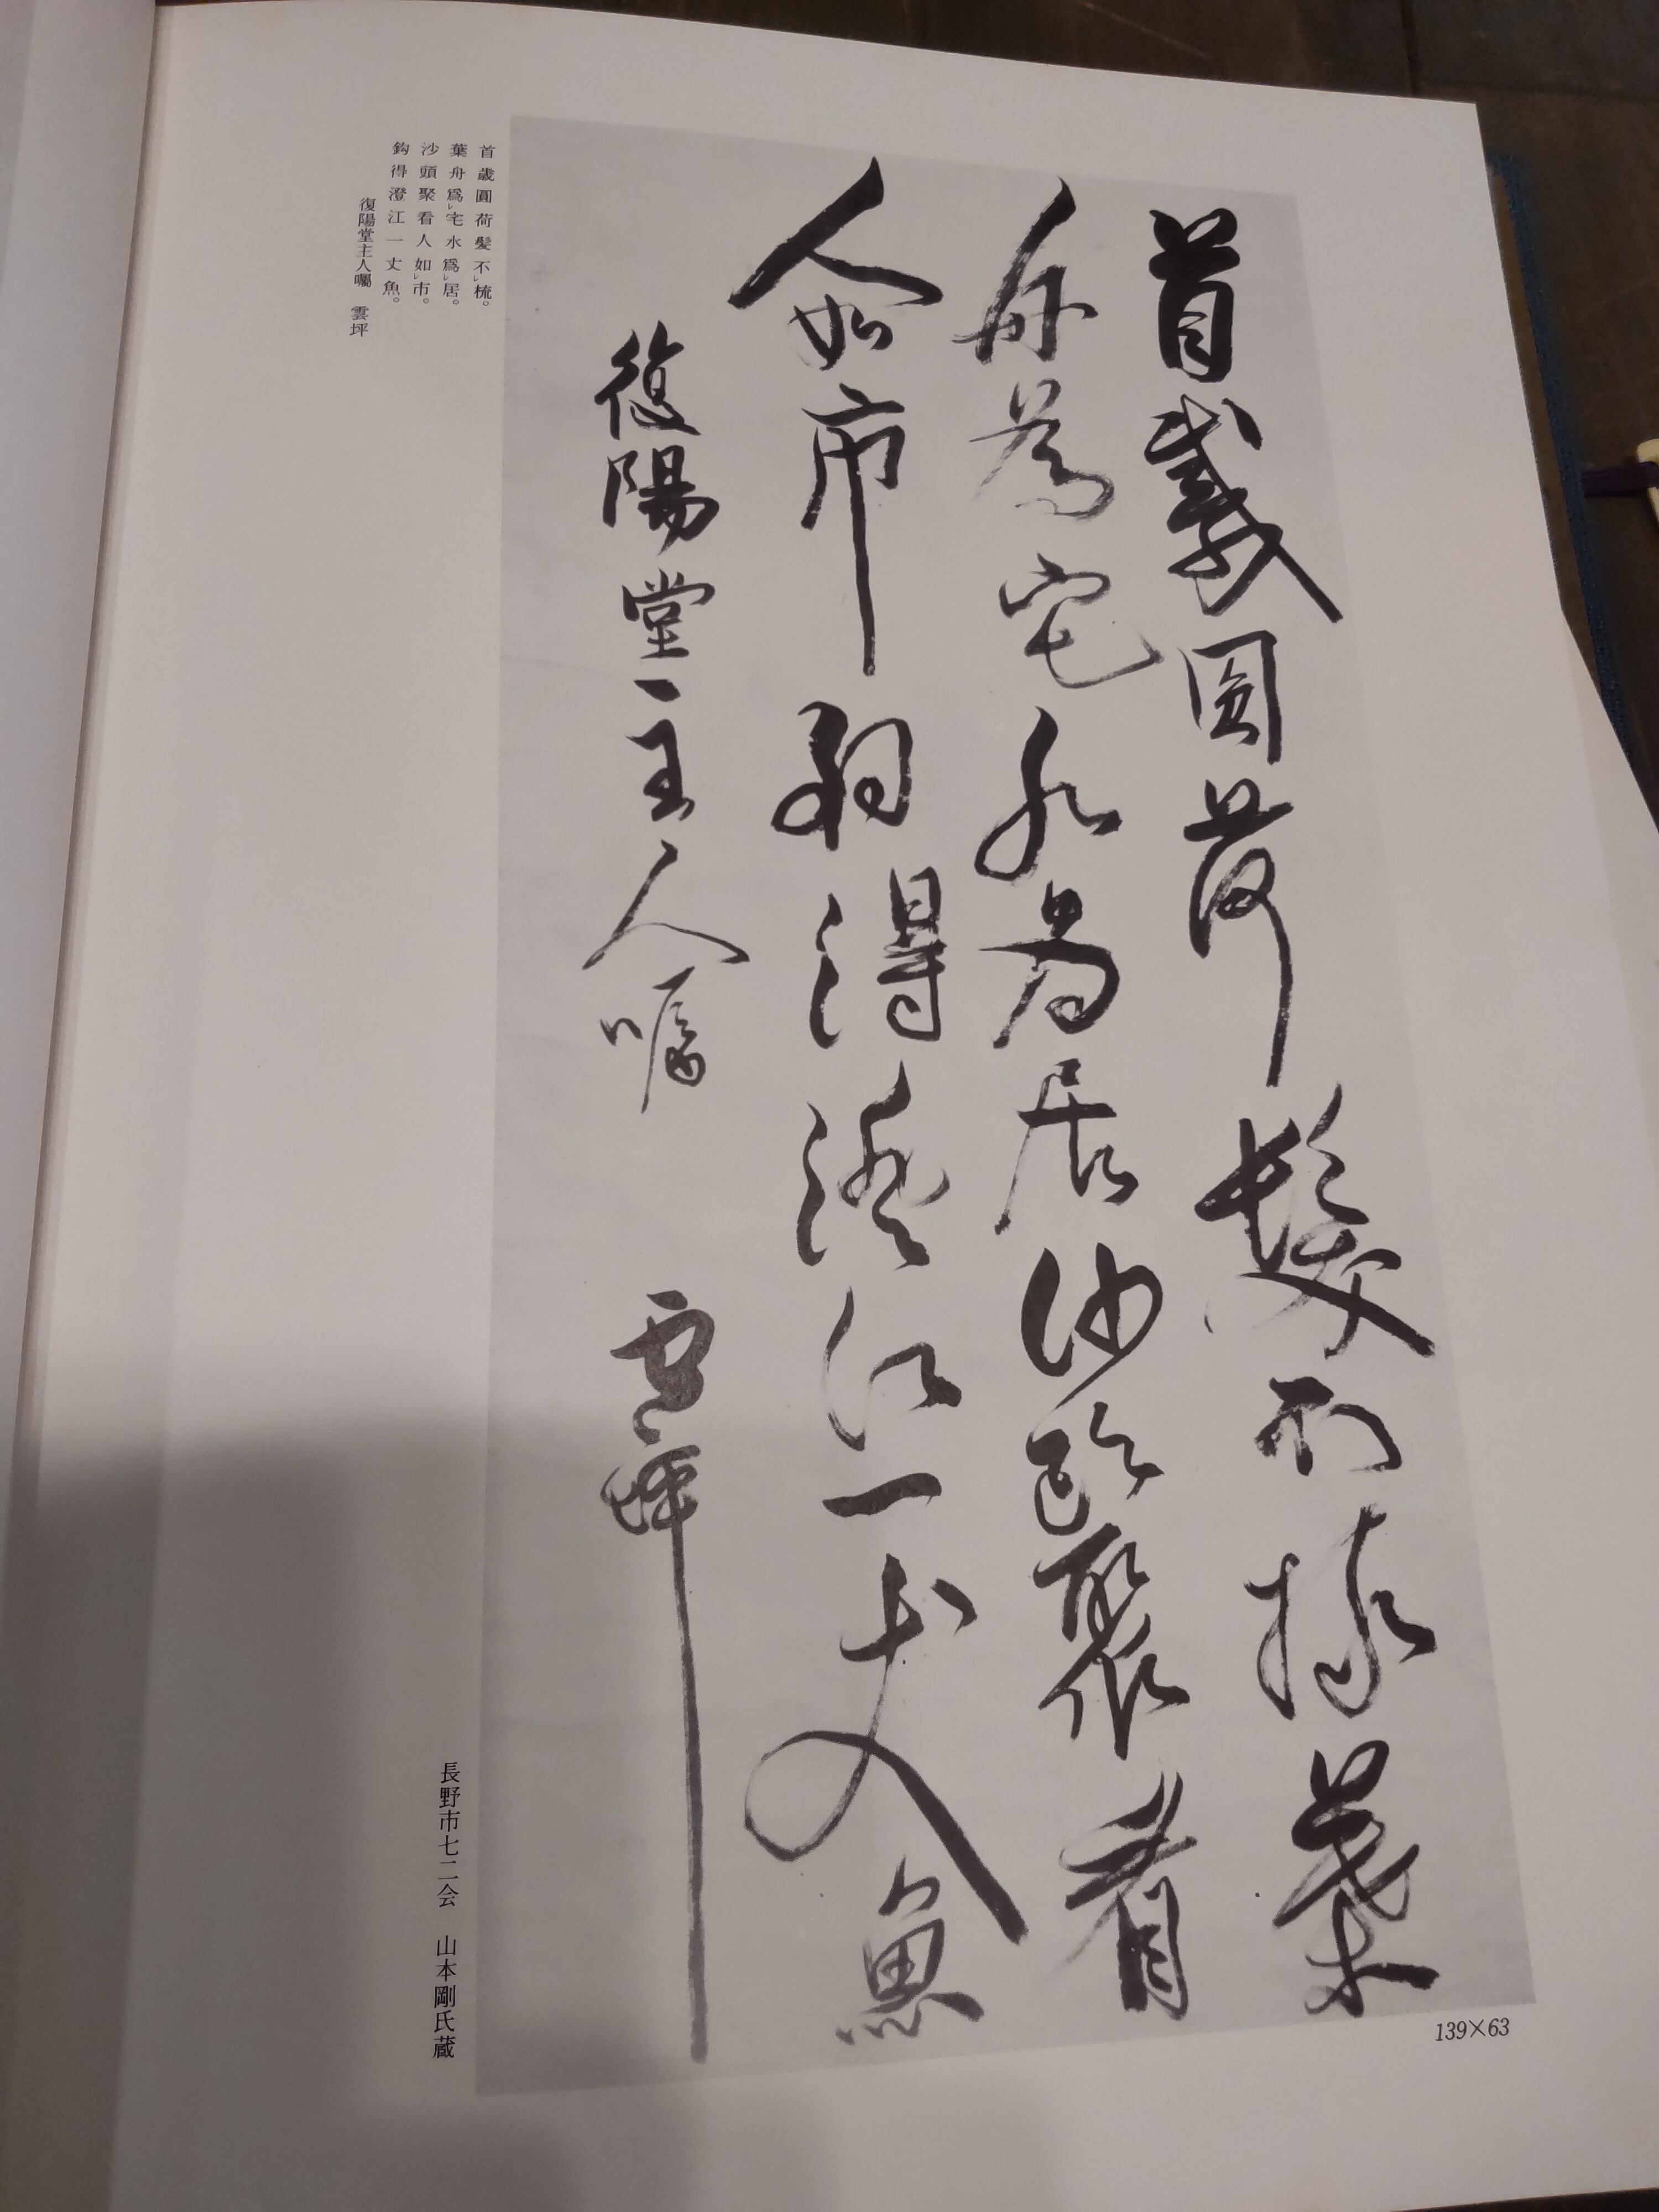 首戴圓荷髮不梳葉
舟為宅水為居沙頭聚看
人如市釣得澄江一丈魚
復陽堂主人囑 雲坪
139×63
首歳圓荷髮不レ梳。
葉舟爲レ宅水爲レ居。
沙頭聚看人如レ市。
鈎得澄江一丈魚。
復陽堂主人囑 雲坪
長野市七二会 山本剛氏蔵